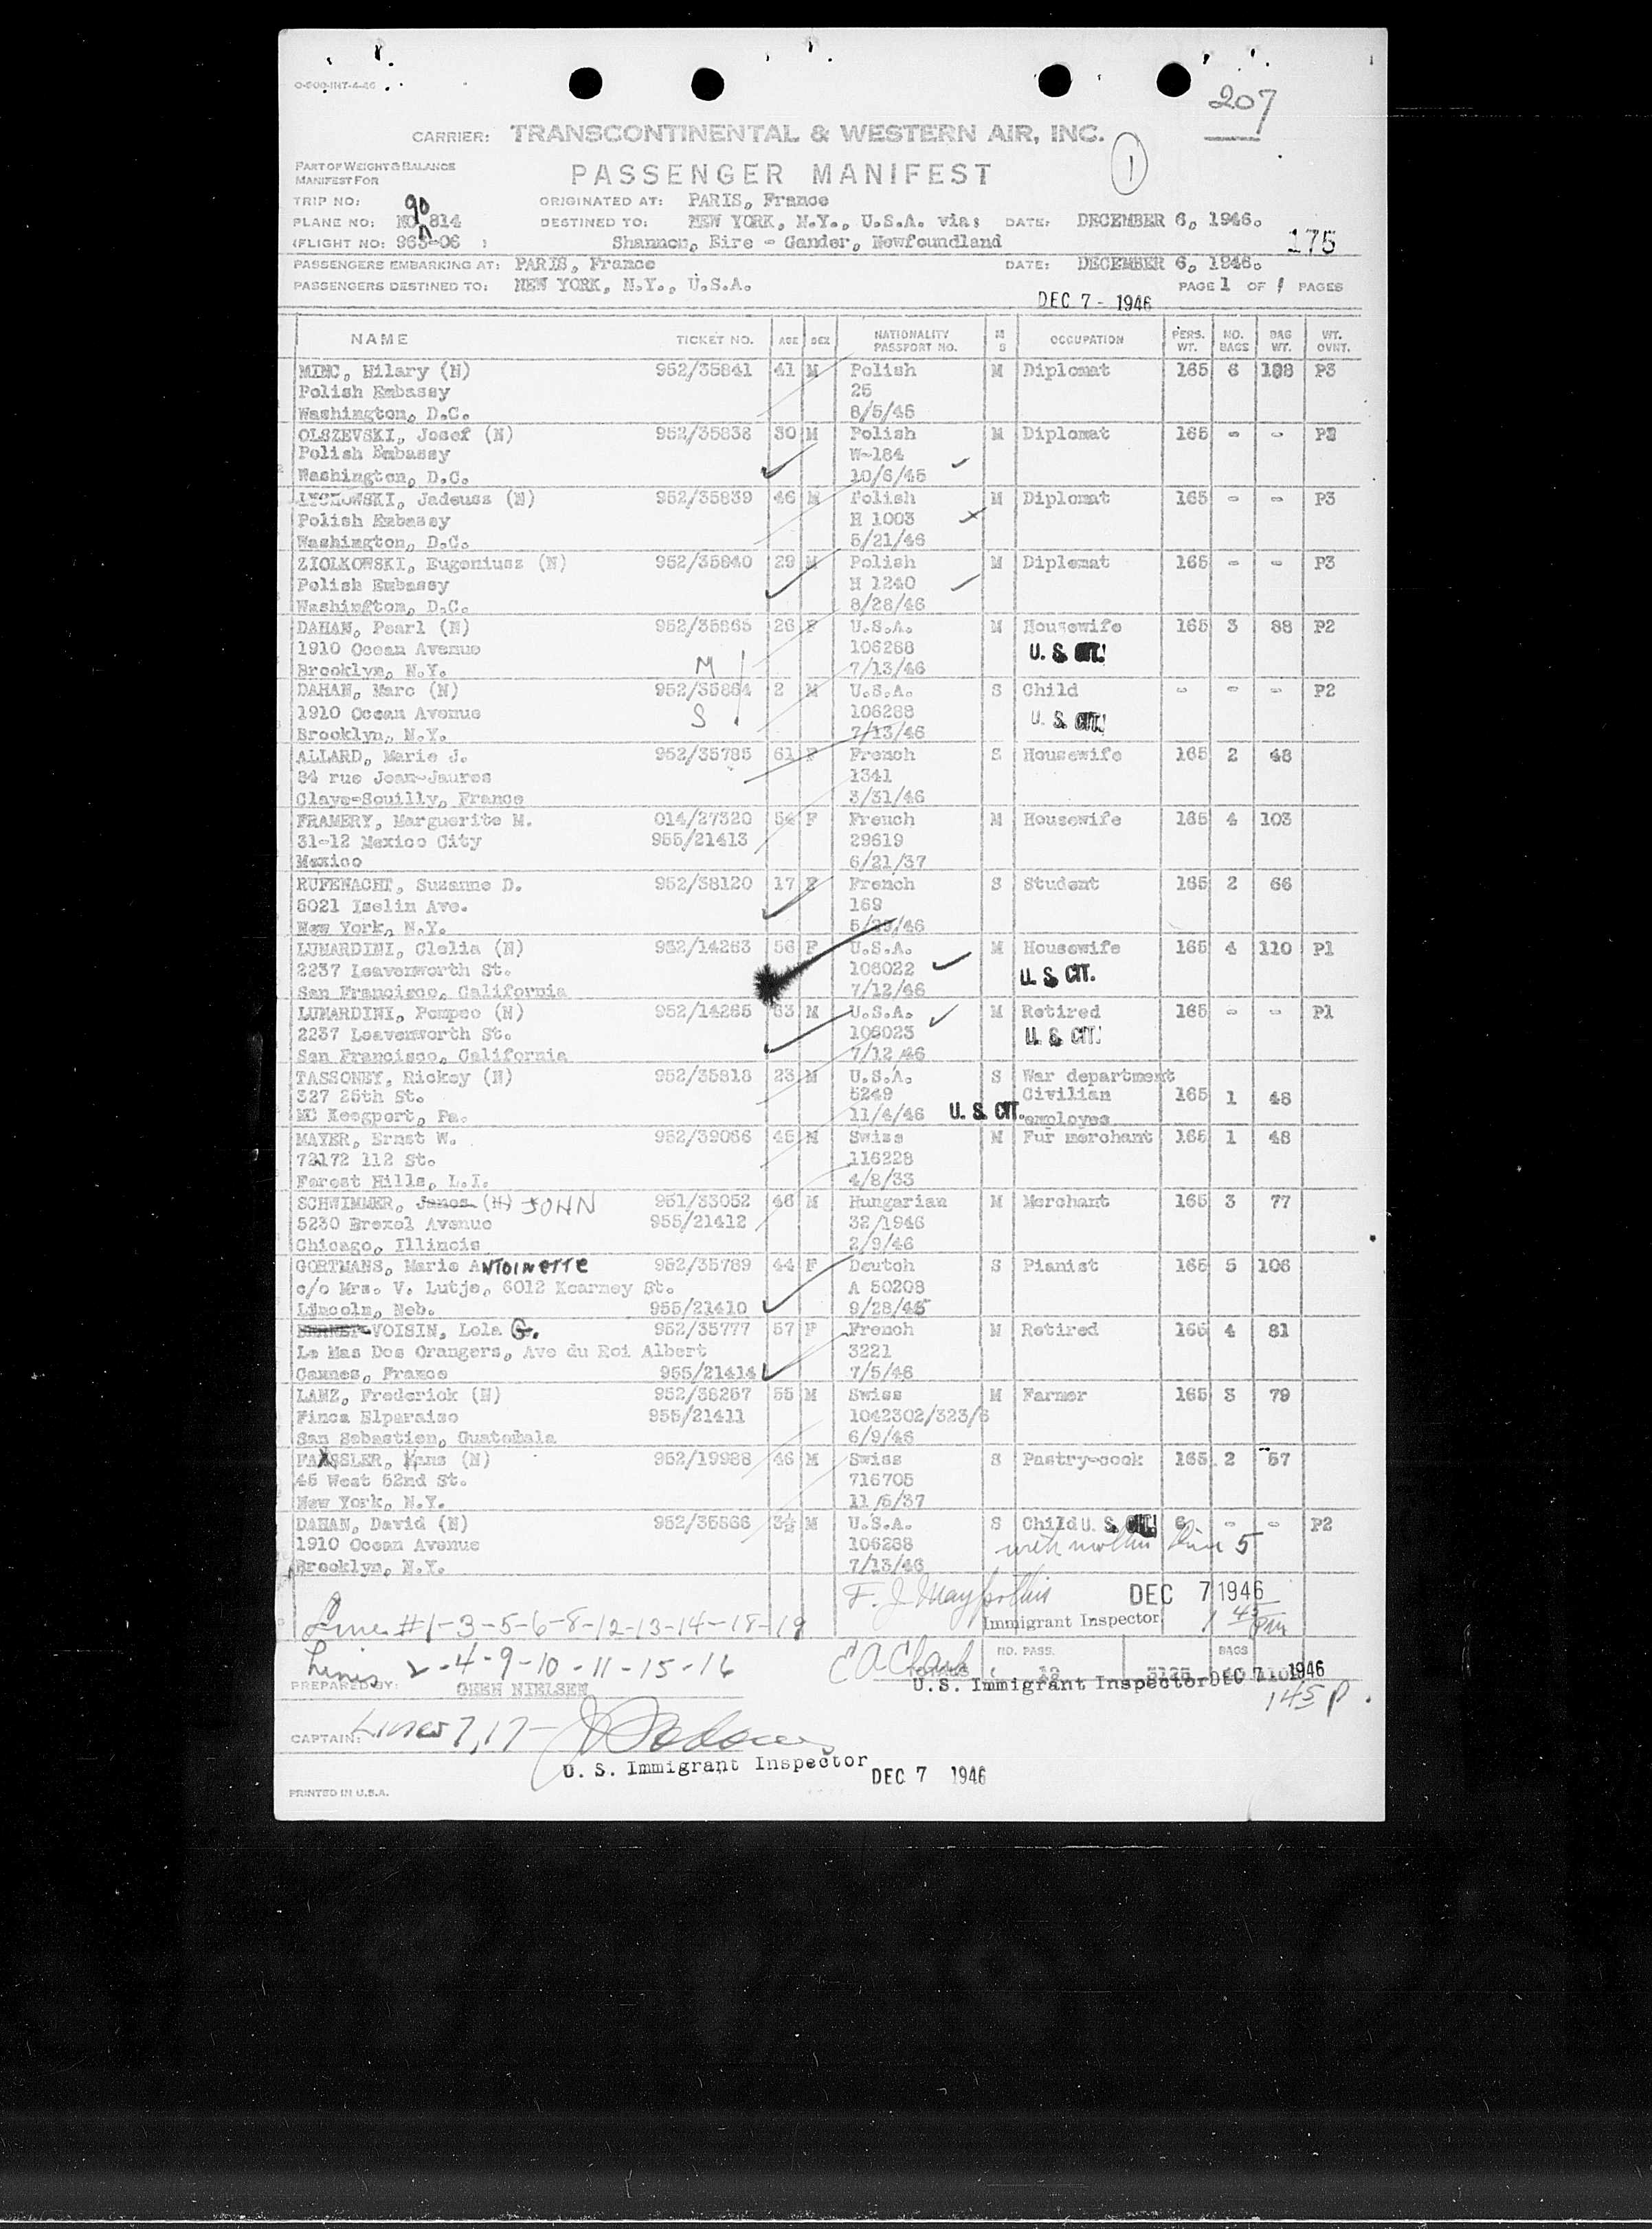 O-500-INT-4-46
207
CARRIER: TRANSCONTINENTAL & WESTERN AIR, INC.
1
PART OF WEIGHT & BALANCE
MANIFEST FOR
PASSENGER MANIFEST
TRIP NO: 90 ORIGINATED AT: PARIS, France
PLANE NO: NC 814 DESTINED TO: NEW YORK, N.Y., U.S.A. via: DATE: DECEMBER 6, 1946.
(FLIGHT NO: 963-06 ) Shannon, Eire - Gander, Newfoundland 175
PASSENGERS EMBARKING AT: PARIS, France DATE: DECEMBER 6, 1946.
PASSENGERS DESTINED TO: NEW YORK, N.Y., U.S.A. PAGE 1 OF 1 PAGES
DEC 7 - 1946
NAME TICKET NO. AGE SEX NATIONALITY PASSPORT NO. M S OCCUPATION PERS. WT. NO. BAGS BAG WT. WT. OVNT.
MINC, Hilary (N) 952/35841 41 M Polish M Diplomat 165 6 188 P3
Polish Embassy 25
Washington, D.C. 8/5/46
OLSZEVSKI, Josef (N) 952/35838 30 M Polish M Diplomat 165 - - P3
Polish Embassy W-184
Washington, D.C. 10/6/45
LYCHOWSKI, Jadeusz (N) 952/35839 46 M Polish M Diplomat 165 - - P3
Polish Embassy H 1003
Washington, D.C. 5/21/46
ZIOLKOWSKI, Eugeniusz (N) 952/35840 29 M Polish M Diplomat 165 - - P3
Polish Embassy H 1240
Washington, D.C. 8/28/46
DAHAN, Pearl (N) 952/35865 26 F U.S.A. M Housewife 165 3 88 P2
1910 Ocean Avenue 106288 U. S. CIT.
Brooklyn, N.Y. M 7/13/46
DAHAN, Marc (N) 952/35864 2 M U.S.A. S Child - - - P2
1910 Ocean Avenue S 106288 U. S. CIT.
Brooklyn, N.Y. 7/13/46
ALLARD, Marie J. 952/35785 61 F French S Housewife 165 2 48
34 rue Jean-Jaures 1341
Claye-Souilly, France 3/31/46
FRAMERY, Marguerite M. 014/27320 54 F French M Housewife 165 4 103
31-12 Mexico City 955/21413 29619
Mexico 6/21/37
RUFENACHT, Suzanne D. 952/38120 17 F French S Student 165 2 66
5021 Iselin Ave. 169
New York, N.Y. 5/29/46
LUNARDINI, Clelia (N) 952/14263 56 F U.S.A. M Housewife 165 4 110 P1
2237 Leavenworth St. 106022 U. S. CIT.
San Francisco, California 7/12/46
LUNARDINI, Pompeo (N) 952/14265 63 M U.S.A. M Retired 165 - - P1
2237 Leavenworth St. 106023 U. S. CIT.
San Francisco, California 7/12 46
TASSONEY, Rickey (N) 952/35818 23 M U.S.A. S War department
327 25th St. 5249 Civilian 165 1 48
MC Keegport, Pa. 11/4/46 U. S. CIT. employee
MAYER, Ernst W. 952/39066 45 M Swiss M Fur merchant 165 1 48
72172 112 St. 116228
Forest Hills, L.I. 4/8/33
SCHWIMMER, Janos (N) JOHN 951/33052 46 M Hungarian M Merchant 165 3 77
5230 Drexel Avenue 955/21412 32/1946
Chicago, Illinois 2/9/46
GORTMANS, Marie ANTOINETTE 952/35789 44 F Deutch S Pianist 165 5 106
c/o Mrs. V. Lutje, 6012 Kearney St. A 50208
Lincoln, Neb. 955/21410 9/28/45
VOISIN, Lola G. 952/35777 57 F French N Retired 165 4 81
Le Mas Des Orangers, Ave du Roi Albert 3221
Cannes, France 955/21414 7/5/46
LANZ, Frederick (N) 952/38257 55 M Swiss M Farmer 165 3 79
Finca Elparaiso 955/21411 1042302/323/6
San Sebastien, Guatemala 6/9/46
FASSLER, Hans (N) 952/19988 46 M Swiss S Pastry-cook 165 2 57
45 West 52nd St. 716705
New York, N.Y. 11/6/37
DAHAN, David (N) 952/35866 3½ M U.S.A. S Child U. S. CIT. 6 - - P2
1910 Ocean Avenue 106288 with mother Line 5
Brooklyn, N.Y. 7/13/46
DEC 7 1946
Lines #1-3-5-6-8-12-13-14-18-19 Immigrant Inspector 1 45 pm
Lines 2-4-9-10-11-15-16 E A Clark TOTALS NO. PASS. 19 3135 BAGS
PREPARED BY: GHEN NIELSEN U.S. Immigrant Inspector DEC 7 1946
145 P.
CAPTAIN: Lines 7, 17-
U. S. Immigrant Inspector DEC 7 1946
PRINTED IN U.S.A.